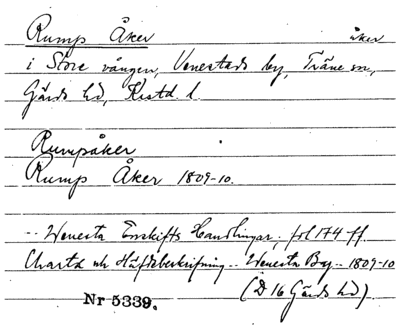 Rump Åker åker
i Store vången, Venestads by, Träne sn,
Gärds hd, Kristd. l.
Rumpåker
Rump Åker 1809-10.
-- Wenesta Enskifts Handlingar, fol 174 ff.
Charta och Häfdebeskrifning -- Wenesta By -- 1809-10
(D 16 Gärds hd).
Nr 5339.